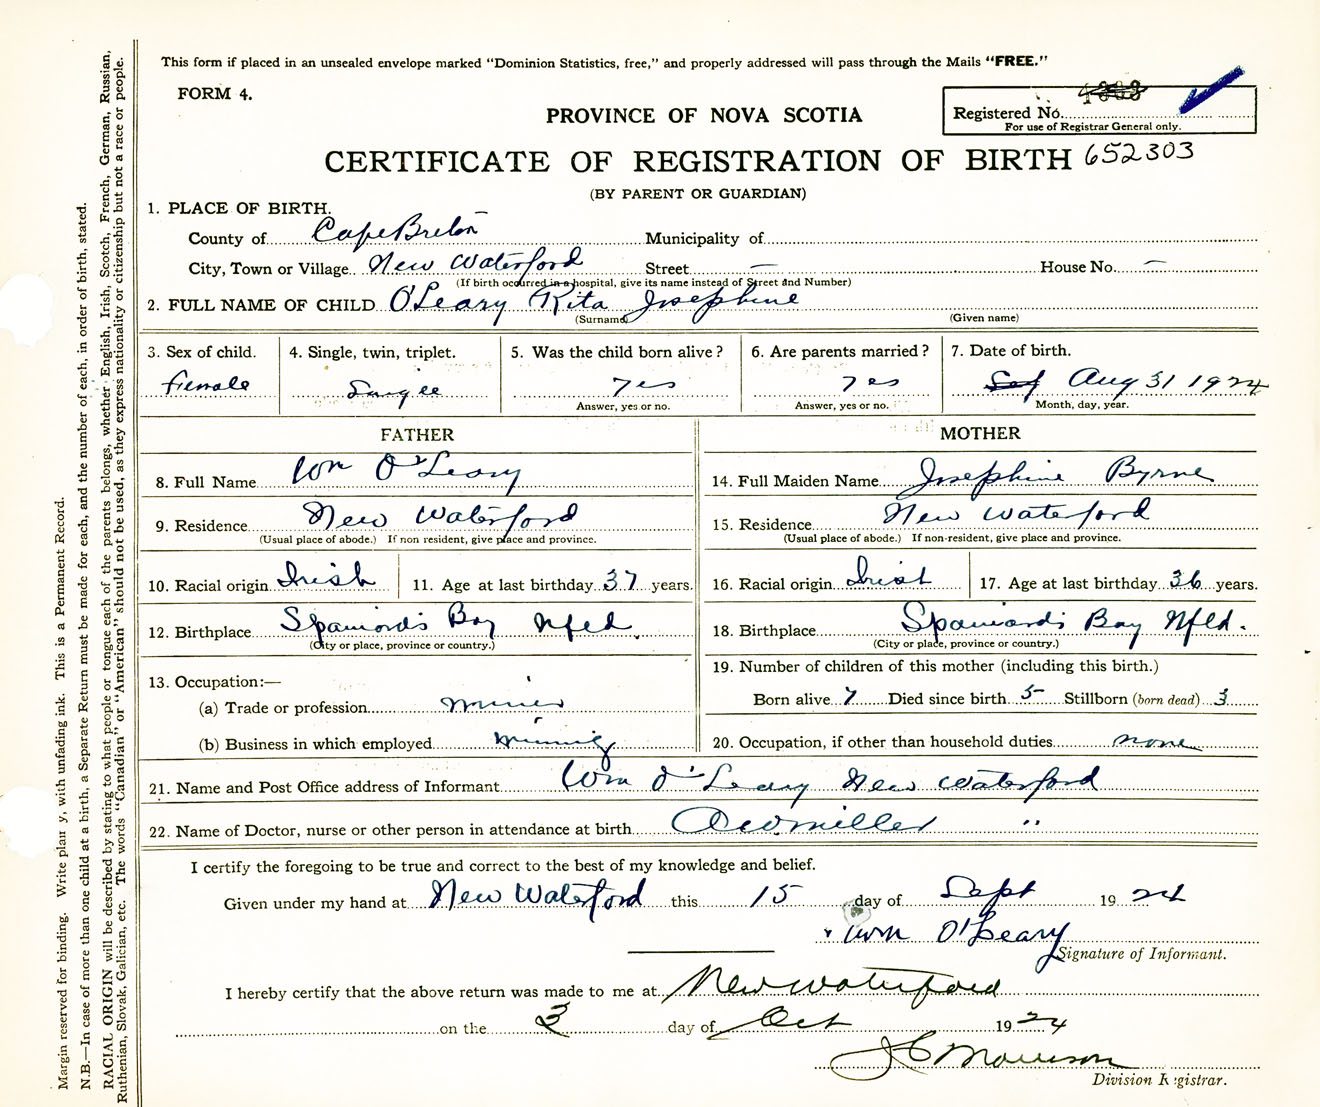 This form if placed in an unsealed envelope marked "Dominion Statistics, free," and properly addressed will pass through the Mails "FREE."
FORM 4.
PROVINCE OF NOVA SCOTIA
Registered No.
For use of Registrar General only.
CERTIFICATE OF REGISTRATION OF BIRTH 652303
(BY PARENT OR GUARDIAN)
1. PLACE OF BIRTH.
County of Cape Breton Municipality of
City, Town or Village New Waterford Street — House No. —
(If birth occurred in a hospital, give its name instead of Street and Number)
2. FULL NAME OF CHILD O'Leary Rita Josephine
(Surname) (Given name)
3. Sex of child. 4. Single, twin, triplet. 5. Was the child born alive? 6. Are parents married? 7. Date of birth.
female Single yes yes Aug 31 1924
Answer, yes or no. Answer, yes or no. Month, day, year.
FATHER MOTHER
8. Full Name Wm O'Leary 14. Full Maiden Name Josephine Byrne
9. Residence New Waterford 15. Residence New Wateford
(Usual place of abode.) If non resident, give place and province. (Usual place of abode.) If non-resident, give place and province.
10. Racial origin Irish 11. Age at last birthday 37 years. 16. Racial origin Irish 17. Age at last birthday 36 years.
12. Birthplace Spaniards Bay Nfld. 18. Birthplace Spaniards Bay Nfld.
(City or place, province or country.) (City or place, province or country.)
19. Number of children of this mother (including this birth.)
13. Occupation:—
Born alive 7 Died since birth 5 Stillborn (born dead) 3
(a) Trade or profession miner
(b) Business in which employed mining 20. Occupation, if other than household duties none
21. Name and Post Office address of Informant Wm O'Leary New Waterford
22. Name of Doctor, nurse or other person in attendance at birth Miller "
I certify the foregoing to be true and correct to the best of my knowledge and belief.
Given under my hand at New Waterford this 15 day of Sept 1924
Wm O'Leary
Signature of Informant.
I hereby certify that the above return was made to me at New Waterford
on the 3 day of Oct 1924
Morrison
Division Registrar.
Margin reserved for binding. Write plainly, with unfading ink. This is a Permanent Record.
N.B.—In case of more than one child at a birth, a Separate Return must be made for each, and the number of each, in order of birth, stated.
RACIAL ORIGIN will be described by stating to what people or tongue each of the parents belongs, whether English, Irish, Scotch, French, German, Russian,
Ruthenian, Slovak, Galician, etc. The words "Canadian" or "American" should not be used, as they express nationality or citizenship but not a race or people.